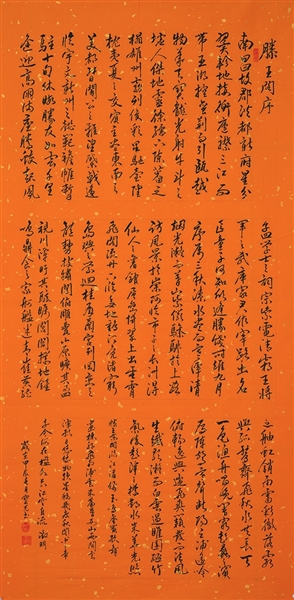 滕王阁序
南昌故郡洪都新府星分
翼轸地接衡庐襟三江而
带五湖控蛮荆而引瓯越
物华天宝龙光射牛斗之
墟人杰地灵徐孺下陈蕃之
榻雄州雾列俊彩星驰台隍
枕夷夏之交宾主尽东南之
美都督阎公之雅望棨戟遥
临宇文新州之懿范襜帷暂
驻十旬休暇胜友如云千里
逢迎高朋满座腾蛟起凤
孟学士之词宗紫电清霜王将
军之武库家君作宰路出名
区童子何知躬逢胜饯时维九月
序属三秋潦水尽而寒潭清
烟光凝而暮山紫俨骖騑于上路
访风景于崇阿临帝子之长洲得
仙人之旧馆层峦耸翠上出重霄
飞阁流丹下临无地鹤汀凫渚穷
岛屿之萦回桂殿兰宫列冈峦之
体势披绣闼俯雕甍山原旷其盈
视川泽盱其骇瞩闾阎扑地钟
鸣鼎食之家舸舰迷津青雀黄龙
之舳虹销雨霁彩彻落霞
与孤鹜齐飞秋水共长天
一色渔舟唱晚响穷彭蠡之滨
雁阵惊寒声断衡阳之浦遥吟
俯畅逸兴遄飞爽籁发而清风
生纤歌凝而白云遏睢园绿竹
气凌彭泽之樽邺水朱华光照
滕王高阁临江渚佩玉鸣鸾罢歌舞
画栋朝飞南浦云朱帘暮卷西山雨闲云
潭影日悠悠物换星移几度秋阁中帝
子今何在槛外长江空自流
岁在甲辰